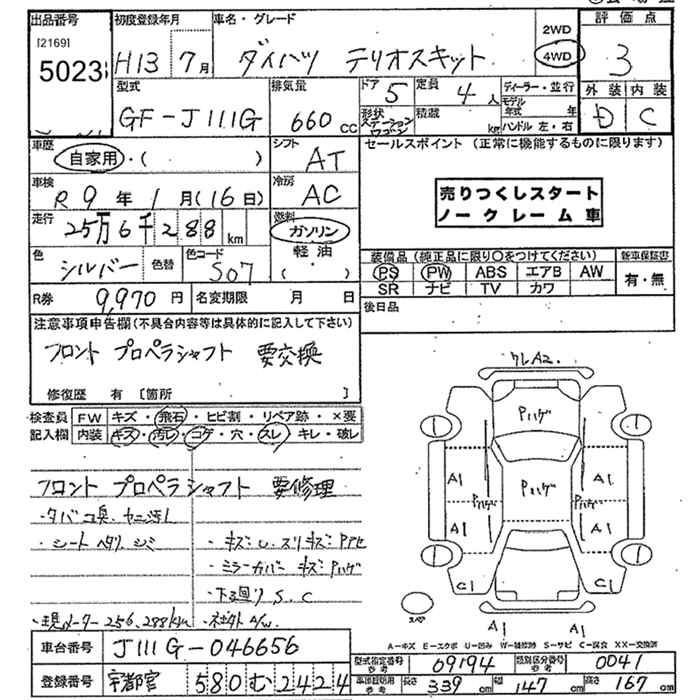 出品番号 初度登録年月 車名・グレード 2WD 4WD 評価点
[2169]
5023 H13 7月 ダイハツ テリオスキット 3
型式 排気量 ドア 定員 ディーラー・並行 外装 内装
GF-J111G 660cc 5 4人 モデル年式 年 D C
形状 ステーションワゴン 積載 kg ハンドル 左・右
車歴 自家用・( ) シフト AT セールスポイント (正常に機能するものに限ります)
車検 R9年1月(16日) 冷房 AC
売りつくしスタート
ノークレーム車
走行 25万6千288km 燃料 ガソリン 軽油 ・( )
色 シルバー 色替 色コード S07
装備品(純正品に限り○をつけてください) 新車保証書
PS PW ABS エアB AW 有・無
SR ナビ TV カワ
R券 9,970円 名変期限 月 日
後日品
注意事項申告欄(不具合内容等は具体的に記入して下さい)
フロント プロペラシャフト 要交換
修復歴 有 〔箇所 〕
検査員 FW キズ・飛石・ヒビ割・リペア跡・×要
記入欄 内装 キズ・汚レ・コゲ・穴・スレ・キレ・破レ
フロント プロペラシャフト 要修理
・タバコ臭.ヤニ汚レ
・シート ヘタリ.シミ ・キズ.U.スリキズ.Pアセ
・ミラーカバー キズ.Pハゲ
・下廻り S.C
・現メーター256,288km
クレA2.
Pハゲ
1 1
A1 Pハゲ A1
Pハゲ Pハゲ
A1 A1
1 1
C1 C1
スペア A1 A1
A-キズ E-エクボ U-凹み W-補修跡 S-サビ C-腐食 XX-交換済
車台番号 J111G-046656 型式指定番号 参考 09194 類別区分番号 参考 0041
登録番号 宇都宮 580 む 2424 長さ 339cm 幅 147cm 高さ 167cm